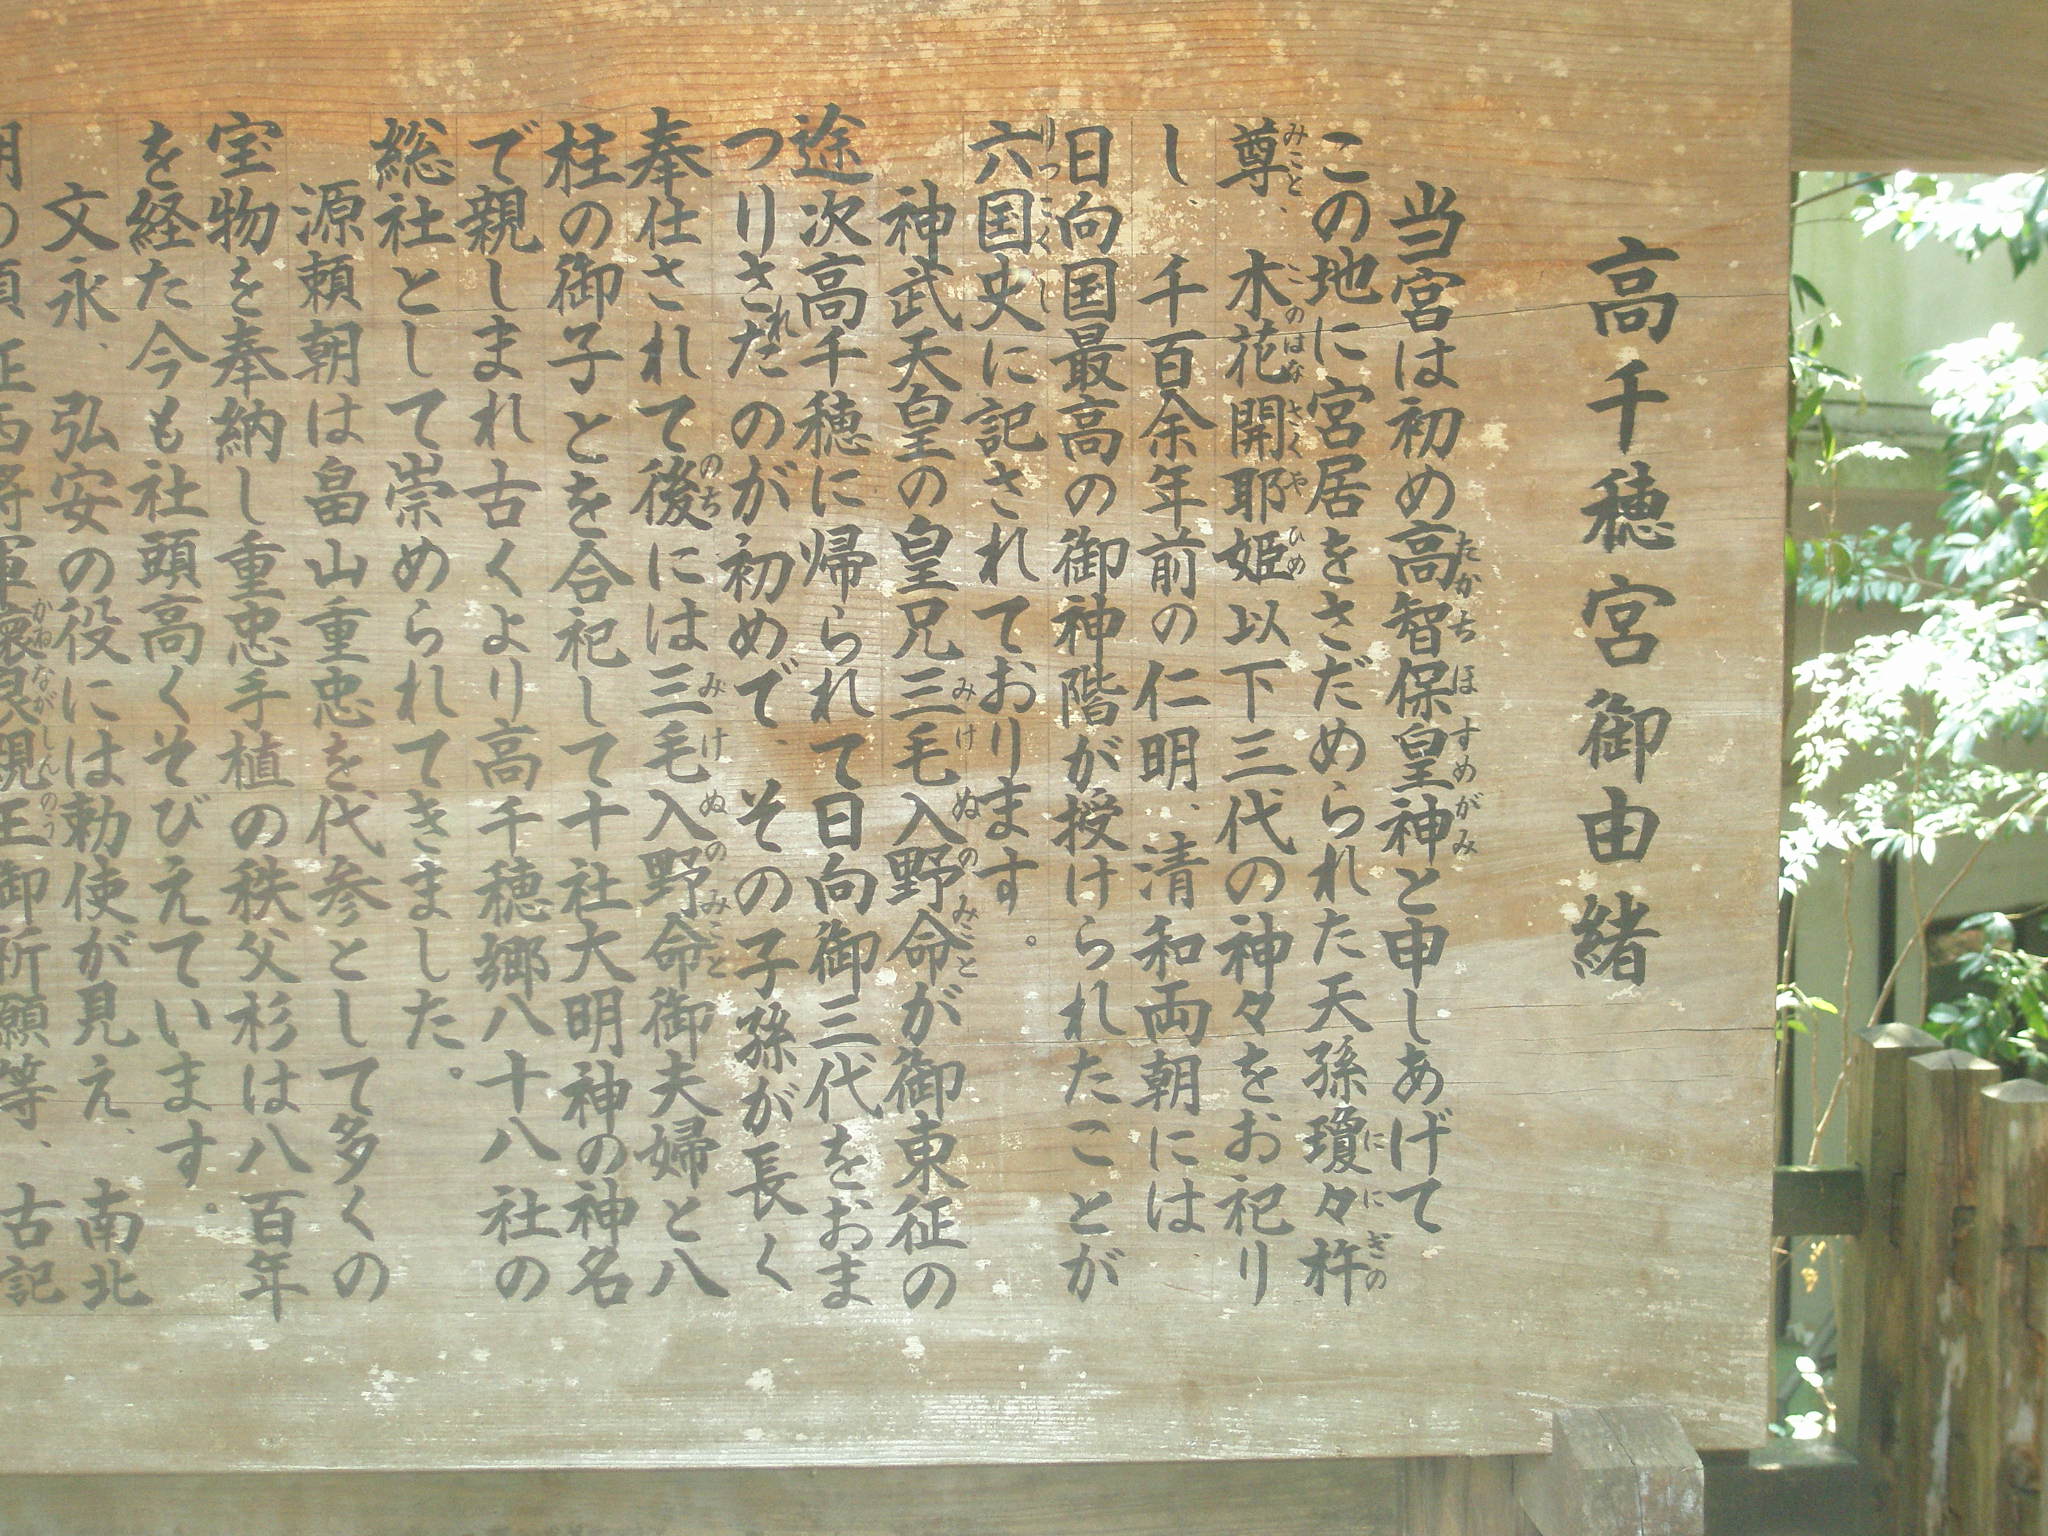 高千穂宮御由緒
当宮は初め高智保皇神と申しあげて
この地に宮居をさだめられた天孫瓊々杵
尊、木花開耶姫以下三代の神々をお祀り
し、千百余年前の仁明、清和両朝には、
日向国最高の御神階が授けられたことが
六国史に記されております。
神武天皇の皇兄三毛入野命が御東征の
途次高千穂に帰られて日向御三代をおま
つりされたのが初めで、その子孫が長く
奉仕されて後には三毛入野命御夫婦と八
柱の御子とを合祀して十社大明神の神名
で親しまれ古くより高千穂郷八十八社の
総社として崇められてきました。
源頼朝は畠山重忠を代参として多くの
宝物を奉納し重忠手植の秩父杉は八百年
を経た今も社頭高くそびえています。
文永、弘安の役には勅使が見え、南北
朝の頃征西将軍懐良親王御祈願等、古記